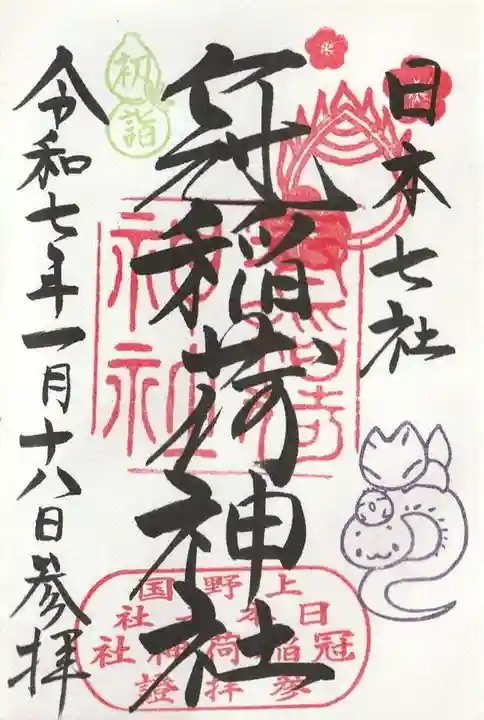 日本七社
冠稲荷神社
令和七年一月十八日参拝
初詣
冠稲荷
神社
上野国
日本七社
冠稲荷神社
参拝證